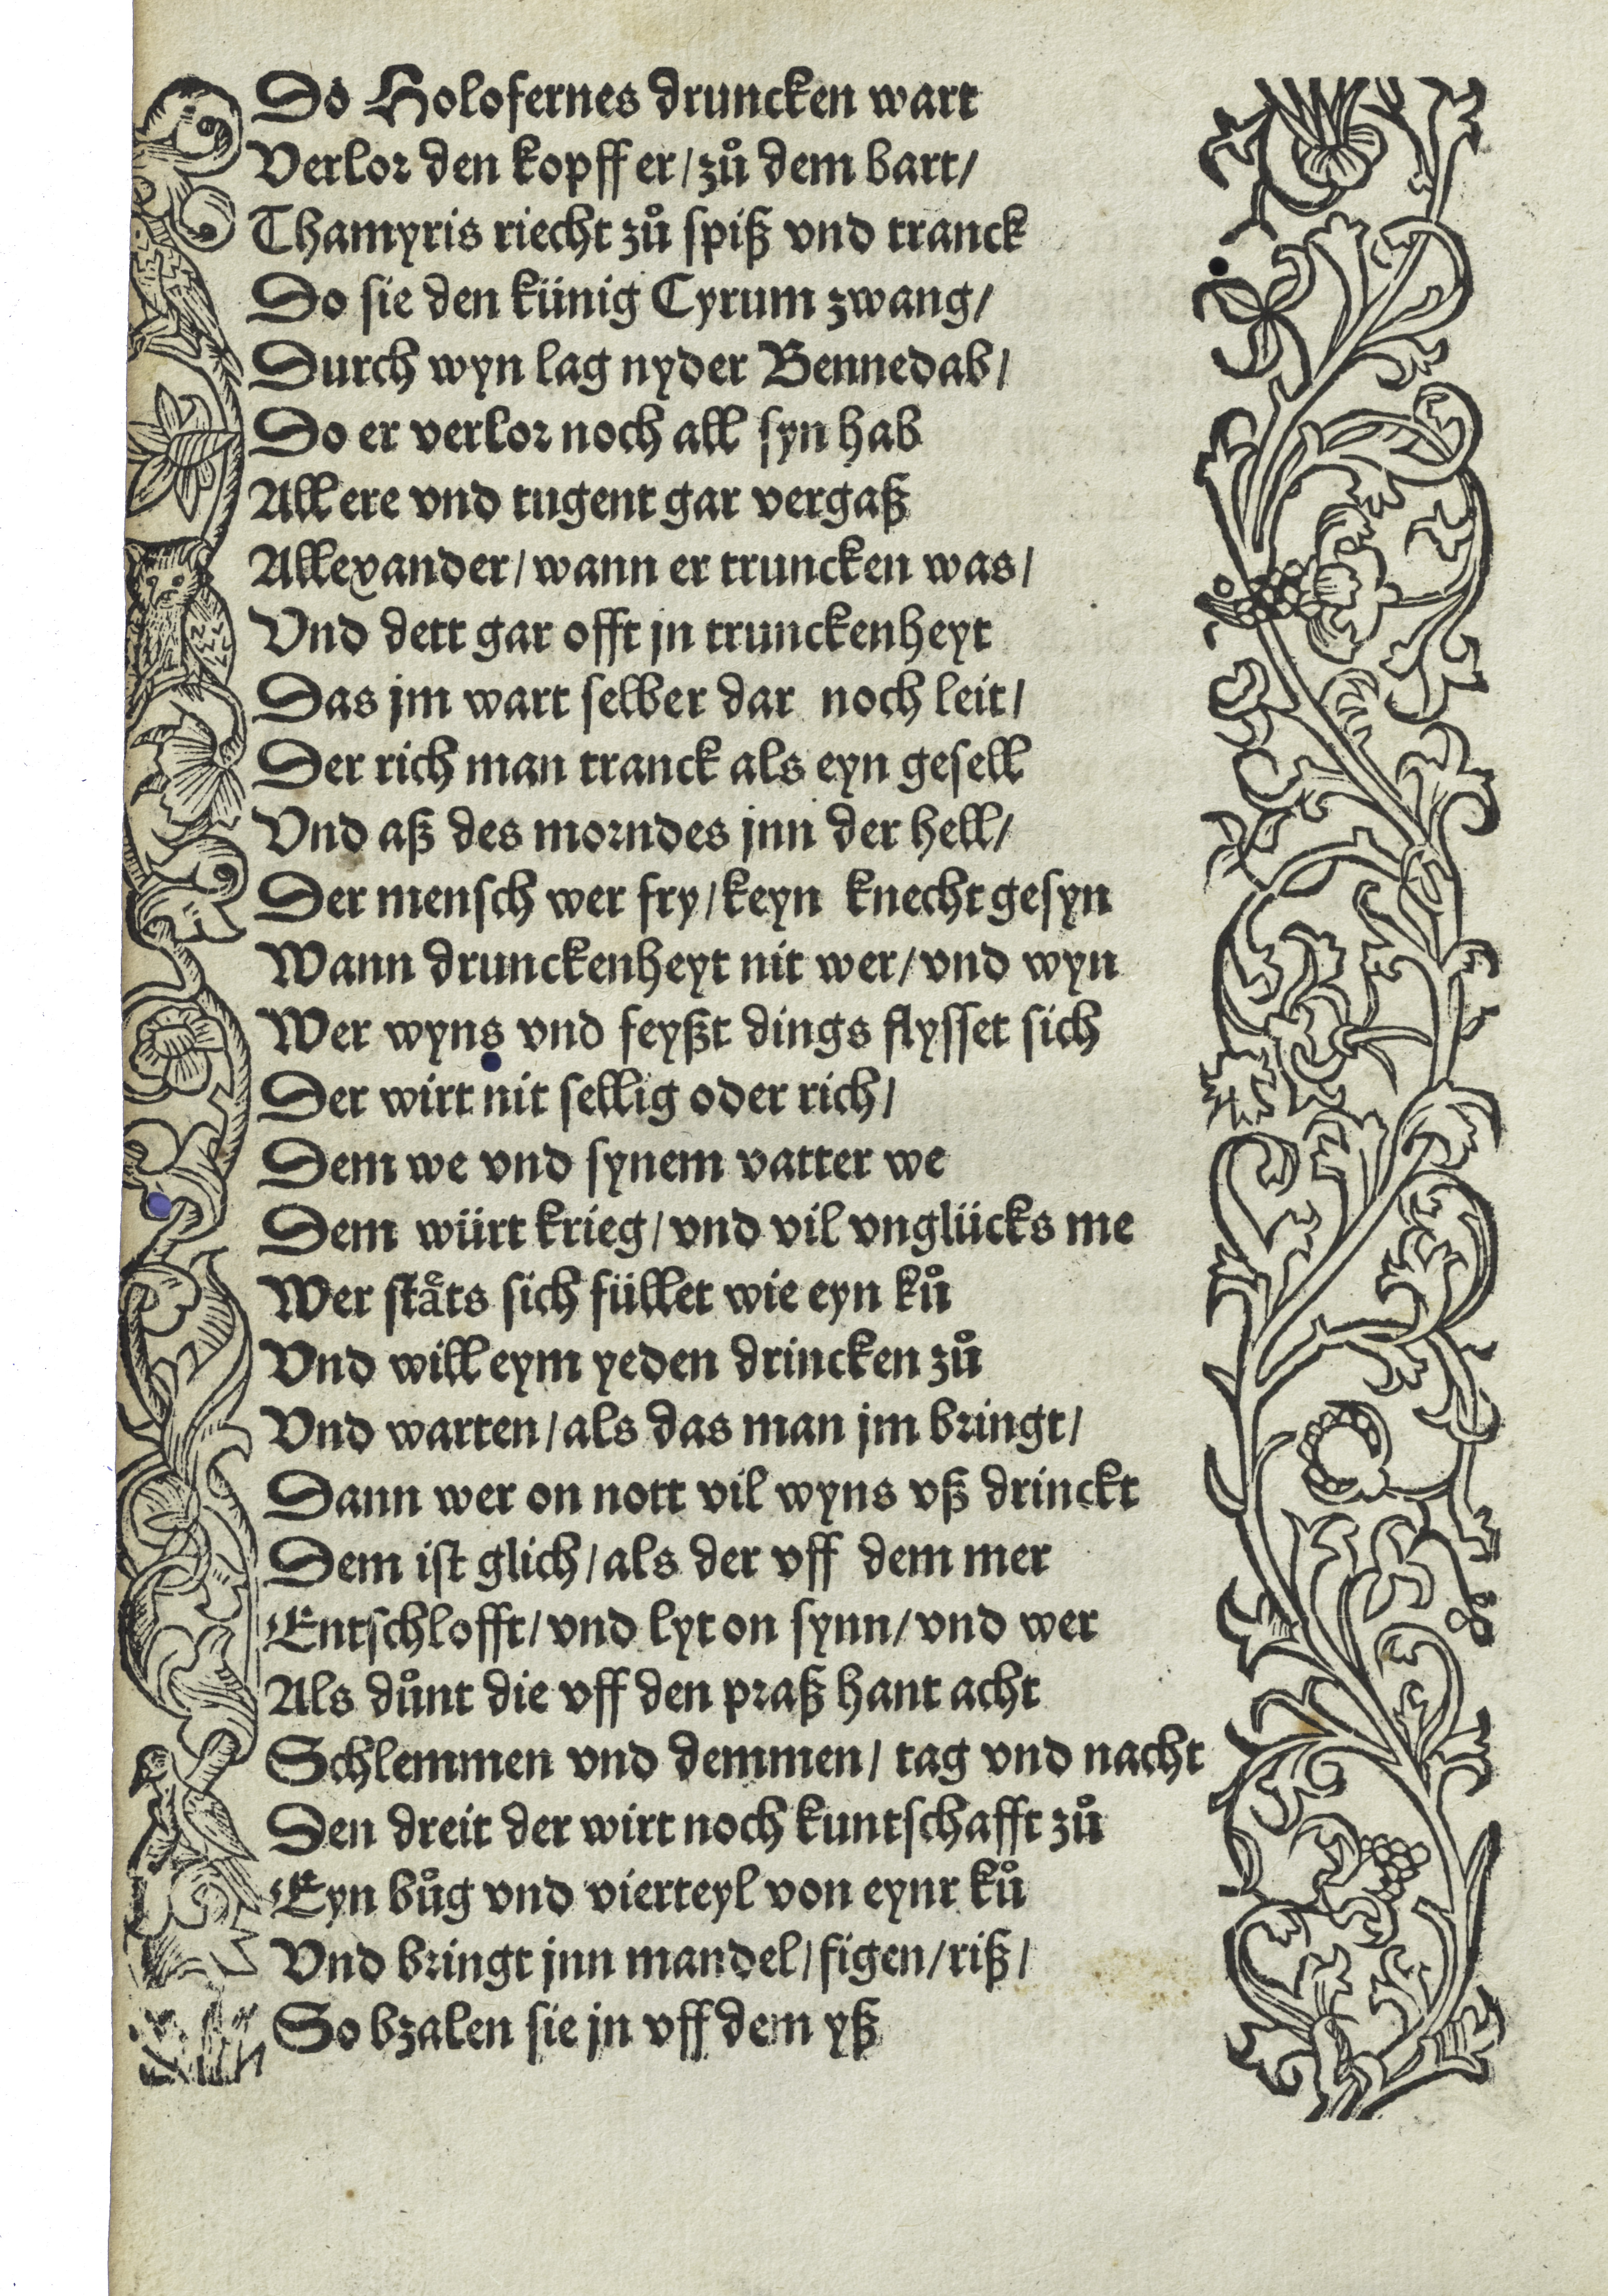 Do Holofernes druncken wart
Verlor den kopff er/zuͦ dem bart/
Thamyris riecht zuͦ spiß vnd tranck
Do sie den künig Cyrum zwang/
Durch wyn lag nyder Bennedab/
Do er verlor noch all syn hab
All ere vnd tugent gar vergaß
Allexander/wann er truncken was/
Vnd dett gar offt jn trunckenheyt
Das jm wart selber dar noch leit/
Der rich man tranck als eyn gesell
Vnd aß des morndes jnn der hell/
Der mensch wer fry/keyn knecht gesyn
Wann drunckenheyt nit wer/vnd wyn
Wer wyns vnd feyßt dings flysset sich
Der wirt nit sellig oder rich/
Dem we vnd synem vatter we
Dem würt krieg/vnd vil vnglücks me
Wer stäts sich füllet wie eyn kuͦ
Vnd will eym yeden drincken zuͦ
Vnd warten/als das man jm bringt/
Dann wer on nott vil wyns vß drinckt
Dem ist glich/als der vff dem mer
Entschlofft/vnd lyt on synn/vnd wer
Als duͦnt die vff den praß hant acht
Schlemmen vnd demmen/tag vnd nacht
Den dreit der wirt noch kuntschafft zuͦ
Eyn buͦg vnd vierteyl von eynr kuͦ
Vnd bringt jnn mandel/figen/riß/
So bzalen sie jn vff dem yß